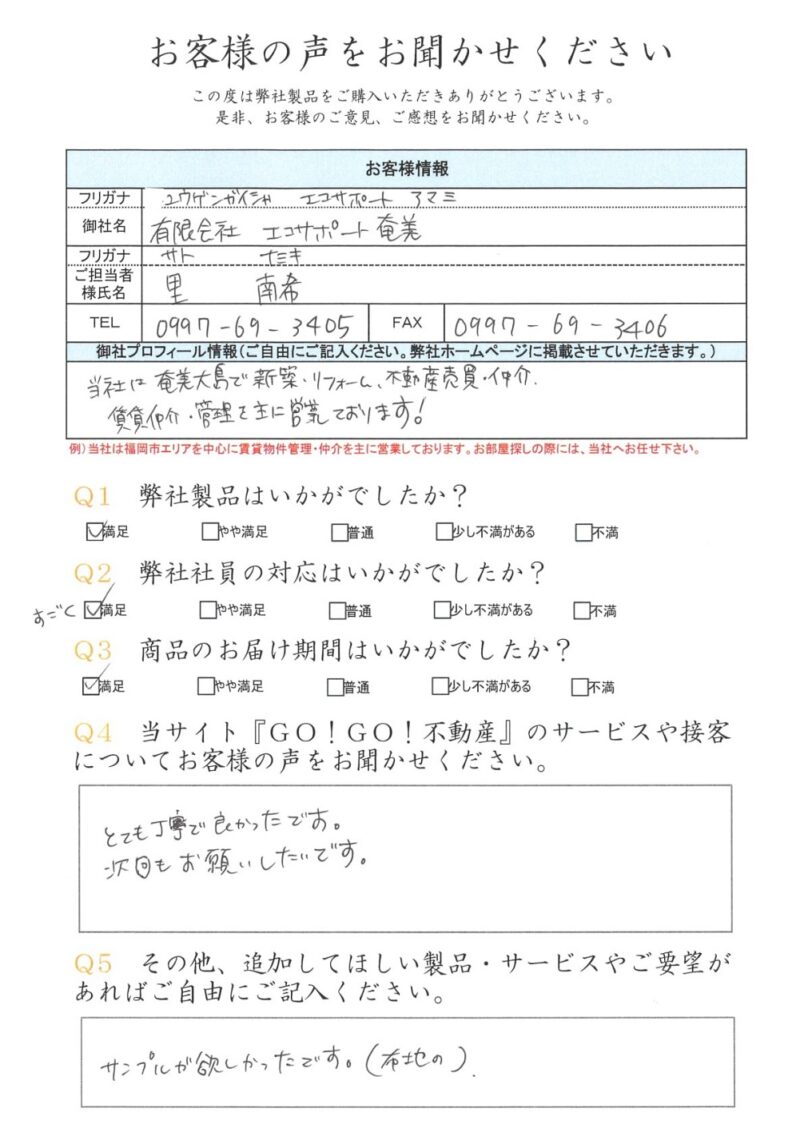 お客様の声をお聞かせください
この度は弊社製品をご購入いただきありがとうございます。
是非、お客様のご意見、ご感想をお聞かせください。
お客様情報
フリガナ ユウゲンガイシャ エコサポート アマミ
御社名 有限会社 エコサポート奄美
フリガナ サト ナミキ
ご担当者様氏名 里 南希
TEL 0997-69-3405 FAX 0997-69-3406
御社プロフィール情報(ご自由にご記入ください。弊社ホームページに掲載させていただきます。)
当社は奄美大島で新築・リフォーム、不動産売買・仲介.
賃貸仲介・管理を主に営業しております!
例)当社は福岡市エリアを中心に賃貸物件管理・仲介を主に営業しております。お部屋探しの際には、当社へお任せ下さい。
Q1 弊社製品はいかがでしたか?
☑満足 □やや満足 □普通 □少し不満がある □不満
Q2 弊社社員の対応はいかがでしたか?
すごく ☑満足 □やや満足 □普通 □少し不満がある □不満
Q3 商品のお届け期間はいかがでしたか?
☑満足 □やや満足 □普通 □少し不満がある □不満
Q4 当サイト『GO!GO!不動産』のサービスや接客
についてお客様の声をお聞かせください。
とても丁寧で良かったです。
次回もお願いしたいです。
Q5 その他、追加してほしい製品・サービスやご要望が
あればご自由にご記入ください。
サンプルが欲しかったです。(布地の).